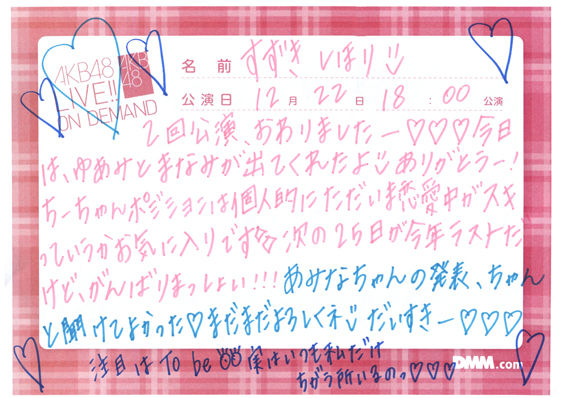 AKB48
LIVE!!
ON DEMAND
AKB
48
名前 すずき しほり
公演日 12月 22日 18:00 公演
2回公演、おわりましたー♡♡♡今日
は、ゆあみとまなみが出てくれたよ ありがとうー!
ちーちゃんポジションは個人的にただいま恋愛中がスキ
っていうかお気に入りです 次の25日が今年ラストだ
けど、がんばりまっしょい!!! あみなちゃんの発表、ちゃん
と聞けてよかった♡まだまだよろしくネ だいすきー♡♡♡
注目は To be 実はいつも私だけ
ちがう所いるのっ♡♡♡
DMM.com